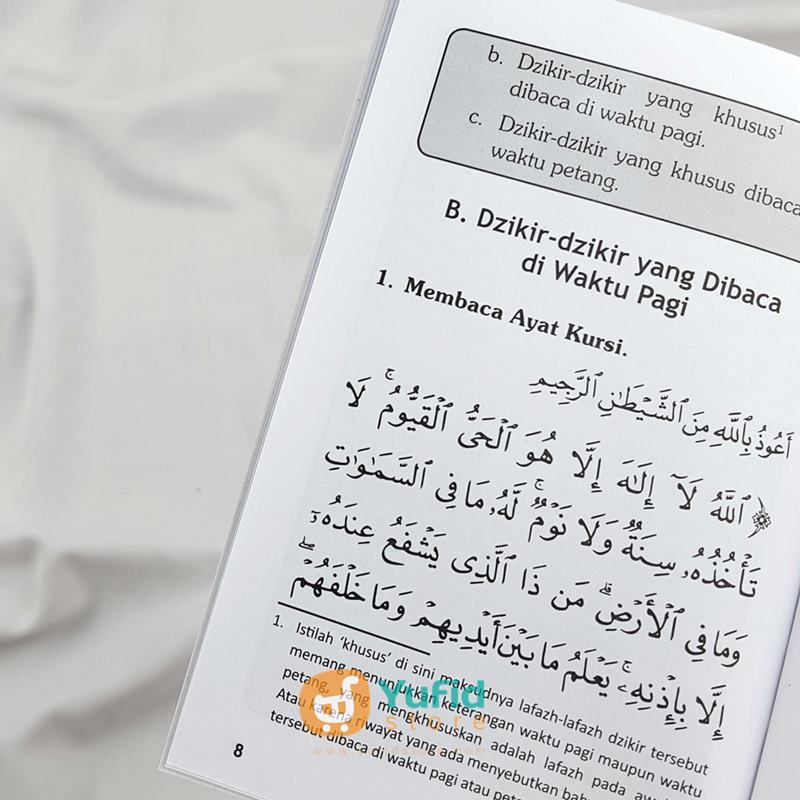 b. Dzikir-dzikir yang khusus¹
dibaca di waktu pagi.
c. Dzikir-dzikir yang khusus dibaca
waktu petang.
B. Dzikir-dzikir yang Dibaca
di Waktu Pagi
1. Membaca Ayat Kursi.
أَعُوذُ بِاللَّهِ مِنَ ٱلشَّيْطَـٰنِ ٱلرَّجِيمِ
﴿ ٱللَّهُ لَآ إِلَـٰهَ إِلَّا هُوَ ٱلْحَىُّ ٱلْقَيُّومُ ۚ لَا
تَأْخُذُهُۥ سِنَةٌ وَلَا نَوْمٌ ۚ لَّهُۥ مَا فِى ٱلسَّمَـٰوَٰتِ
وَمَا فِى ٱلْأَرْضِ ۗ مَن ذَا ٱلَّذِى يَشْفَعُ عِندَهُۥٓ
إِلَّا بِإِذْنِهِۦ ۚ يَعْلَمُ مَا بَيْنَ أَيْدِيهِمْ وَمَا خَلْفَهُمْ ۖ
1. Istilah 'khusus' di sini maksudnya lafazh-lafazh dzikir tersebut
memang menunjukkan keterangan waktu pagi maupun waktu
petang, yang mengkhususkan adalah lafazh pada
Atau karena riwayat yang ada menyebutkan
tersebut dibaca di waktu pagi atau
8
Yufid
store
www.yufidstore.com